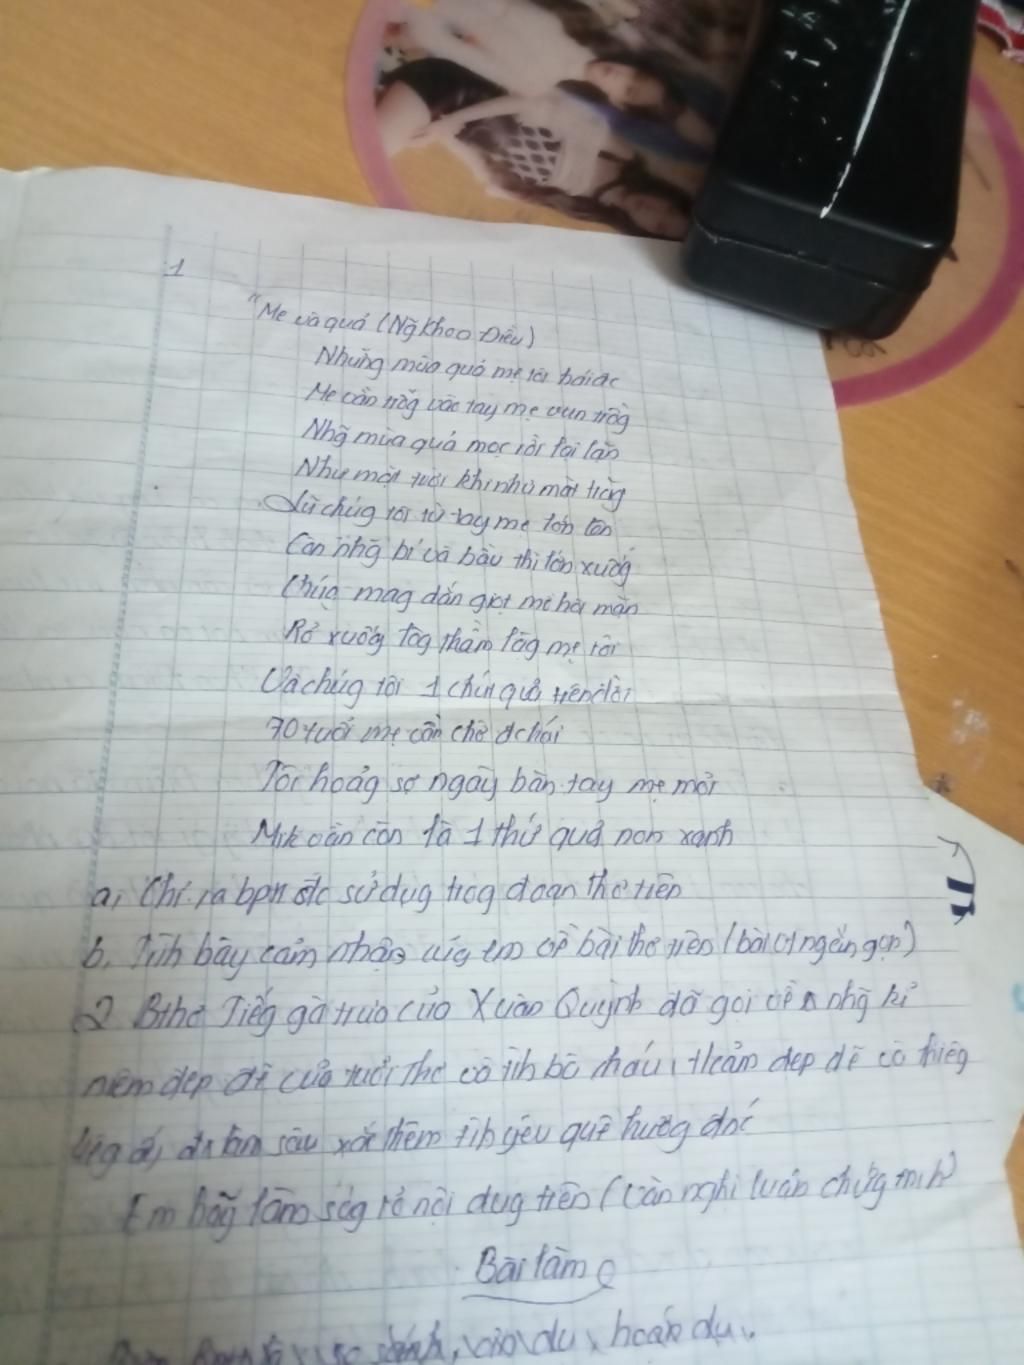 1
"Mẹ và quả (Ng~ Khoa Điềm)
Những mùa quả mẹ tôi hái đc
Mẹ vẫn trôg vào tay mẹ vun trồg
Nhg~ mùa quả mọc rồi lại lặn
Như mặt trời khi như mặt trăg
Lũ chúg tôi từ tay mẹ lớn lên
Còn nhg~ bí và bầu thì lớn xuốg
Chúg mag dág giọt mồ hôi mặn
Rỏ xuốg lòg thầm lặg mẹ tôi
Và chúg tôi 1 thứ quả trên đời
70 tuổi mẹ còn chờ đc hái
Tôi hoảg sợ ngày bàn tay mẹ mỏi
Mìh vẫn còn là 1 thứ quả non xanh
a, Chỉ ra bpnt đc sử dụg trog đoạn thơ trên
b, Trìh bày cảm nhận củg em về bài thơ trên (bài vt ngắn gọn)
2 Bthơ Tiếg gà trưa của Xuân Quỳnh đã gọi về nhg~ kỉ
niệm đẹp đẽ của tuổi thơ và tìh bà cháu, thắm đẹp đẽ và thiêg
liêg ấy đã làm sâu sắc thêm tìh yêu quê hươg đnc
Em hãy làm ság rõ nội dug trên (văn nghị luận chứg mih)
Bài làm
sánh, ẩn dụ, hoán dụ.